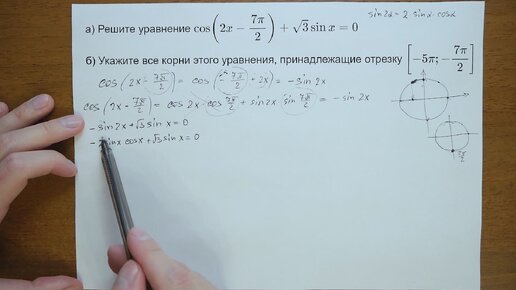 sin2α = 2·sinα·cosα
а) Решите уравнение cos(2x − 7π/2) + √3 sin x = 0
б) Укажите все корни этого уравнения, принадлежащие отрезку [−5π; −7π/2]
cos(2x − 7π/2) = cos(−7π/2 + 2x) = −sin2x
cos(2x − 7π/2) = cos2x·cos 7π/2 + sin2x·sin 7π/2 = −sin2x
−sin2x + √3 sin x = 0
−2sinx·cosx + √3 sin x = 0